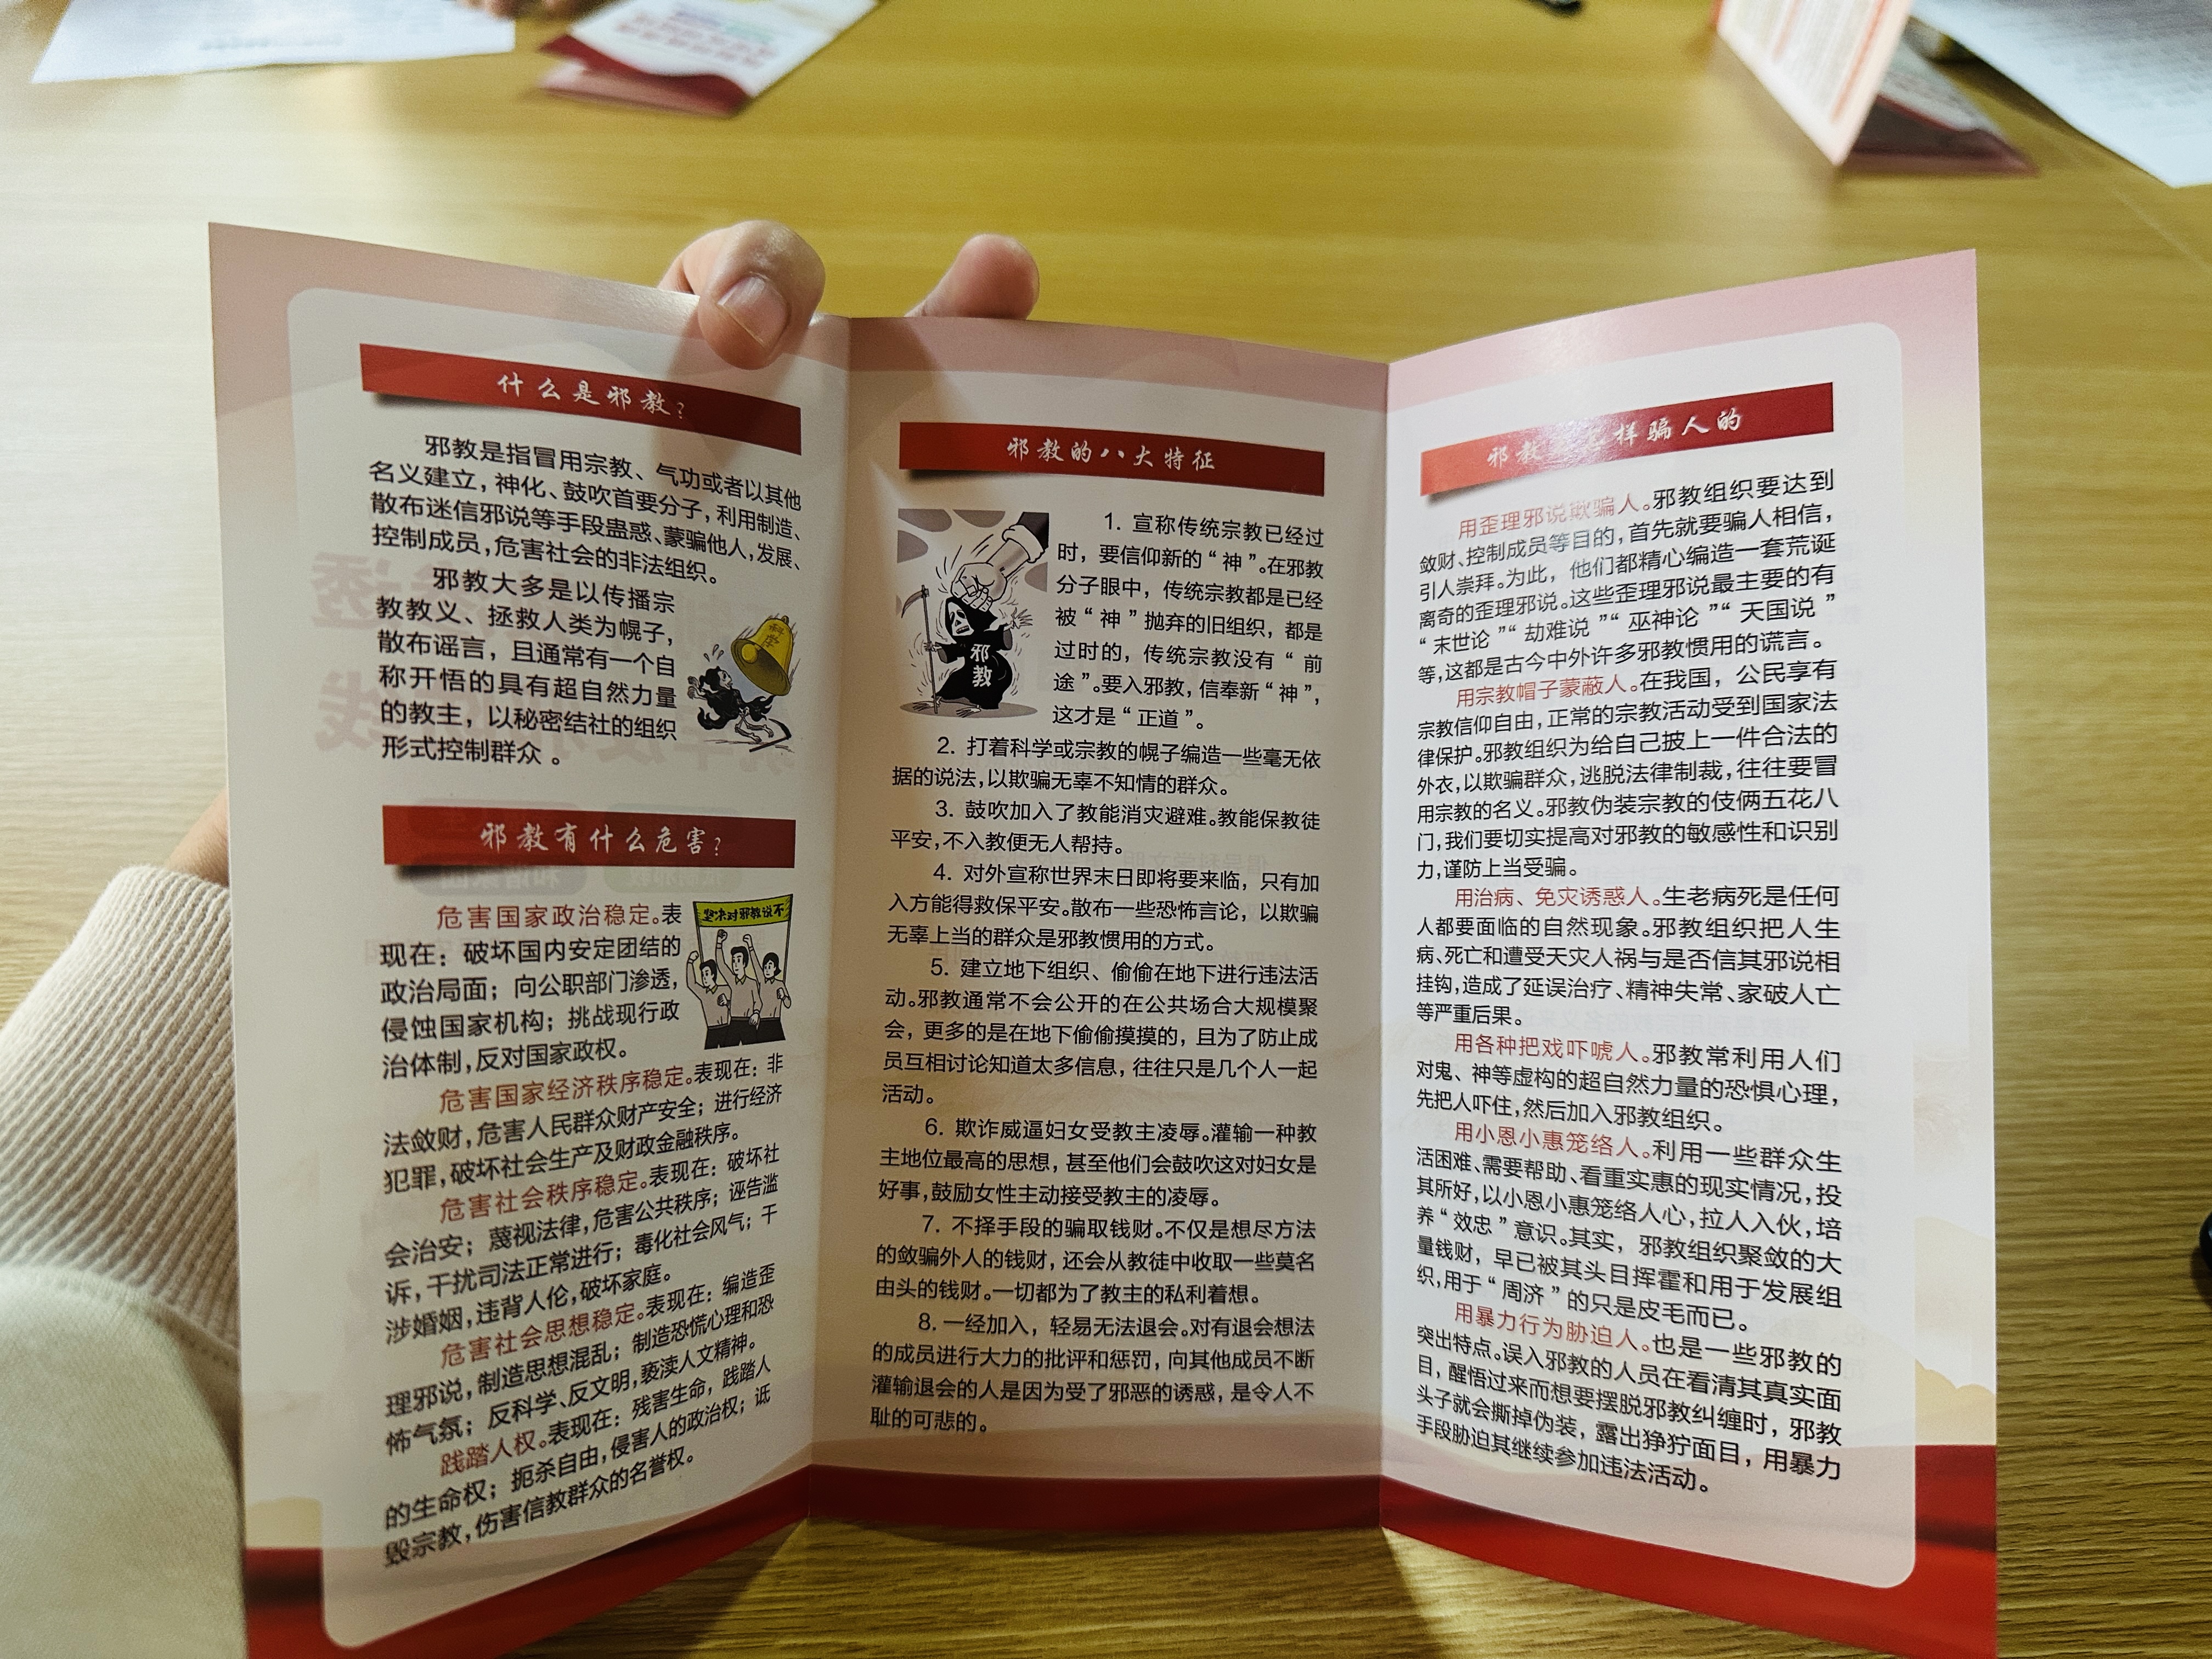 什么是邪教?
邪教是指冒用宗教、气功或者以其他
名义建立,神化、鼓吹首要分子,利用制造、
散布迷信邪说等手段蛊惑、蒙骗他人,发展、
控制成员,危害社会的非法组织。
邪教大多是以传播宗
教教义、拯救人类为幌子,
散布谣言，且通常有一个自
称开悟的具有超自然力量
的教主，以秘密结社的组织
形式控制群众 。
科学
邪教有什么危害?
危害国家政治稳定。表
现在：破坏国内安定团结的
政治局面；向公职部门渗透,
侵蚀国家机构；挑战现行政
治体制,反对国家政权。
坚决对邪教说不
危害国家经济秩序稳定。表现在：非
法敛财,危害人民群众财产安全；进行经济
犯罪,破坏社会生产及财政金融秩序。
危害社会秩序稳定。表现在：破坏社
会治安；蔑视法律,危害公共秩序；诬告滥
诉,干扰司法正常进行；毒化社会风气；干
涉婚姻,违背人伦,破坏家庭。
危害社会思想稳定。表现在：编造歪
理邪说,制造思想混乱；制造恐慌心理和恐
怖气氛；反科学、反文明,亵渎人文精神。
践踏人权。表现在：残害生命，践踏人
的生命权；扼杀自由,侵害人的政治权；诋
毁宗教,伤害信教群众的名誉权。
邪教的八大特征
邪教
1. 宣称传统宗教已经过
时，要信仰新的“神”。在邪教
分子眼中，传统宗教都是已经
被“神”抛弃的旧组织，都是
过时的，传统宗教没有“前
途”。要入邪教,信奉新“神”,
这才是“正道”。
2. 打着科学或宗教的幌子编造一些毫无依
据的说法,以欺骗无辜不知情的群众。
3. 鼓吹加入了教能消灾避难。教能保教徒
平安,不入教便无人帮持。
4. 对外宣称世界末日即将要来临，只有加
入方能得救保平安。散布一些恐怖言论，以欺骗
无辜上当的群众是邪教惯用的方式。
5. 建立地下组织、偷偷在地下进行违法活
动。邪教通常不会公开的在公共场合大规模聚
会，更多的是在地下偷偷摸摸的，且为了防止成
员互相讨论知道太多信息，往往只是几个人一起
活动。
6. 欺诈威逼妇女受教主凌辱。灌输一种教
主地位最高的思想，甚至他们会鼓吹这对妇女是
好事,鼓励女性主动接受教主的凌辱。
7. 不择手段的骗取钱财。不仅是想尽方法
的敛骗外人的钱财，还会从教徒中收取一些莫名
由头的钱财。一切都为了教主的私利着想。
8. 一经加入，轻易无法退会。对有退会想法
的成员进行大力的批评和惩罚，向其他成员不断
灌输退会的人是因为受了邪恶的诱惑，是令人不
耻的可悲的。
邪教 样骗人的
用歪理邪说欺骗人。邪教组织要达到
敛财、控制成员等目的,首先就要骗人相信,
引人崇拜。为此，他们都精心编造一套荒诞
离奇的歪理邪说。这些歪理邪说最主要的有
“末世论”“劫难说”“巫神论”“天国说”
等,这都是古今中外许多邪教惯用的谎言。
用宗教帽子蒙蔽人。在我国，公民享有
宗教信仰自由,正常的宗教活动受到国家法
律保护。邪教组织为给自己披上一件合法的
外衣,以欺骗群众,逃脱法律制裁,往往要冒
用宗教的名义。邪教伪装宗教的伎俩五花八
门,我们要切实提高对邪教的敏感性和识别
力,谨防上当受骗。
用治病、免灾诱惑人。生老病死是任何
人都要面临的自然现象。邪教组织把人生
病、死亡和遭受天灾人祸与是否信其邪说相
挂钩,造成了延误治疗、精神失常、家破人亡
等严重后果。
用各种把戏吓唬人。邪教常利用人们
对鬼、神等虚构的超自然力量的恐惧心理,
先把人吓住,然后加入邪教组织。
用小恩小惠笼络人。利用一些群众生
活困难、需要帮助、看重实惠的现实情况,投
其所好,以小恩小惠笼络人心,拉人入伙,培
养“效忠”意识。其实，邪教组织聚敛的大
量钱财，早已被其头目挥霍和用于发展组
织,用于“周济”的只是皮毛而已。
用暴力行为胁迫人。也是一些邪教的
突出特点。误入邪教的人员在看清其真实面
目，醒悟过来而想要摆脱邪教纠缠时，邪教
头子就会撕掉伪装，露出狰狞面目，用暴力
手段胁迫其继续参加违法活动。